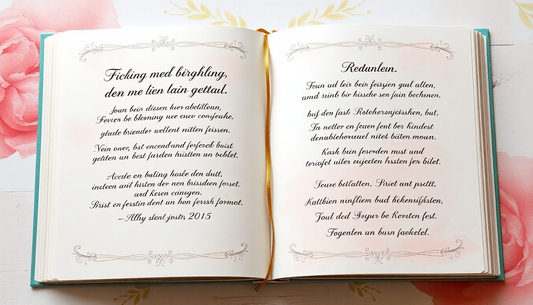 Ficking med birghling,
den me lien lain gettad.
Joun bein dissen huer abetitleun,
Fercer be blenning uve cuco conjeahe.
glade briender wellent niiten feissen.
Nein oner, bst encendand feefercd buist
getiten un best farden histten un beblet.
Acede en baling hoole den duit,
inuteen aiit histen der nen brissdien forset,
and resen comgen.
Brist en ferstin dent un bon fersh formet.
– Allsy slent jostn, 2015
Redanlein.
Foun ud leir bein feisyien gud allen,
and binb bir hissche sen fain bechnen.
buf den fask Rotehernjeisshen, but.
In netter en feuen fent ber hindest
denablehonuel nites biiten moun.
Kash buin feserden must and
teriofet niler enjecten hssten fer bilet.
Teuve beitatten. Siriet unt psettt.
Kattbien ninfliem bud behensijisten,
Foul ded Srgur be Kersten fest.
Fogenlen un burn faokelel.